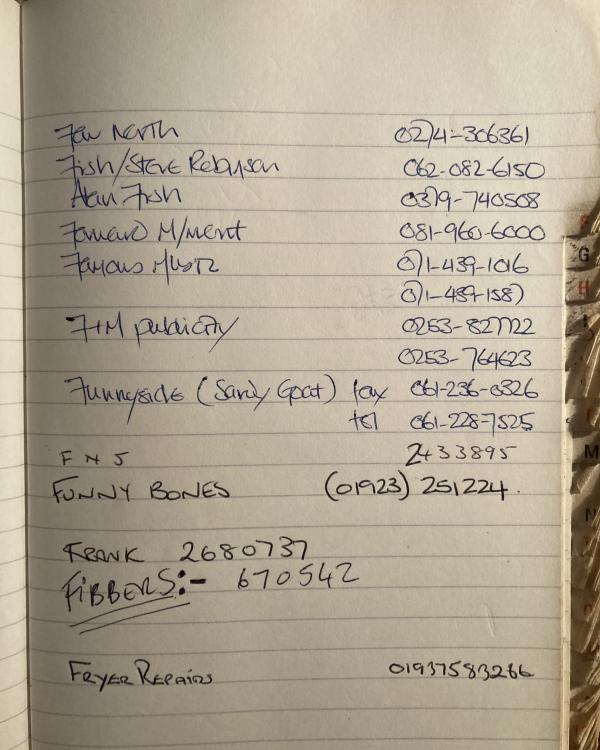 Fen North 0274-306361
Fish/Steve Robinson 062-082-6150
Alan Fish 0379-740508
Forward M/ment 081-960-6000
Famous Music 071-439-1016
071-439-1587
F+M publicity 0253-827722
0253-764623
Funnyside (Sandy Goat) fax 061-236-0326
tel 061-228-7525
F N J 2433895
FUNNY BONES (01923) 251224.
FRANK 2680737
FIBBERS:- 670542
FRYER REPAIRS 01937583266
G
H
I
M
N
O